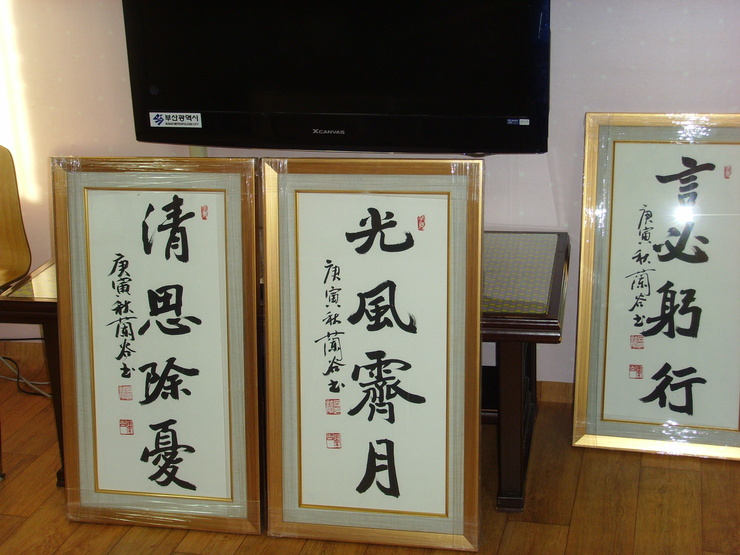 부산광역시
XCANVAS
清思除憂
庚寅秋蘭谷書
光風霽月
庚寅秋蘭谷書
言必躬行
庚寅秋蘭谷書